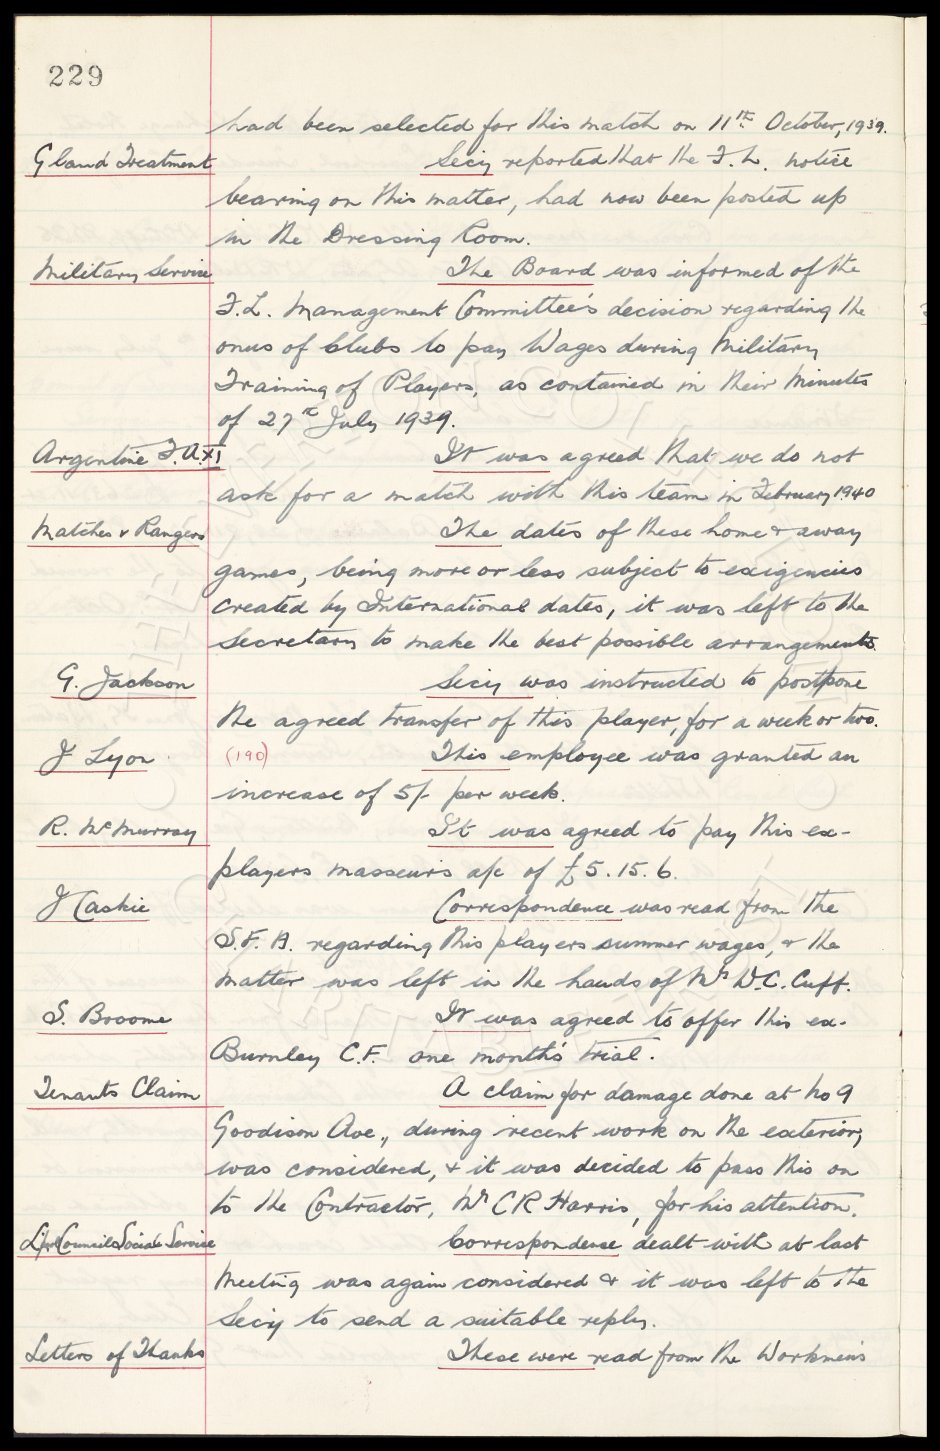 229
had been selected for this match on 11th October, 1939.
Gland Treatment Secy reported that the F.L. notice
bearing on this matter, had now been posted up
in the Dressing Room.
Military Service The Board was informed of the
F.L. Management Committee's decision regarding the
onus of Clubs to pay Wages during Military
Training of Players, as contained in their Minutes
of 27th July 1939.
Argentine F.A. XI It was agreed that we do not
ask for a match with this team in February 1940
Matches v Rangers The dates of these home & away
games, being more or less subject to exigencies
created by International dates, it was left to the
Secretary to make the best possible arrangements.
G. Jackson Secy was instructed to postpone
the agreed transfer of this player, for a week or two.
J Lyon (190) This employee was granted an
increase of 5/- per week.
R. McMurray It was agreed to pay this ex-
players masseur's a/c of £5.15.6.
J Caskie Correspondence was read from the
S.F.A. regarding this players summer wages, & the
matter was left in the hands of Mr W.C. Cuff.
S. Bocome It was agreed to offer this ex-
Burnley C.F. one month's trial.
Tenants Claim A claim for damage done at No 9
Goodison Ave., during recent work on the exterior,
was considered, & it was decided to pass this on
to the Contractor, Mr C R Harris, for his attention.
L'pool Council Social Service Correspondence dealt with at last
Meeting was again considered & it was left to the
Secy to send a suitable reply.
Letters of Thanks These were read from the Workmen's